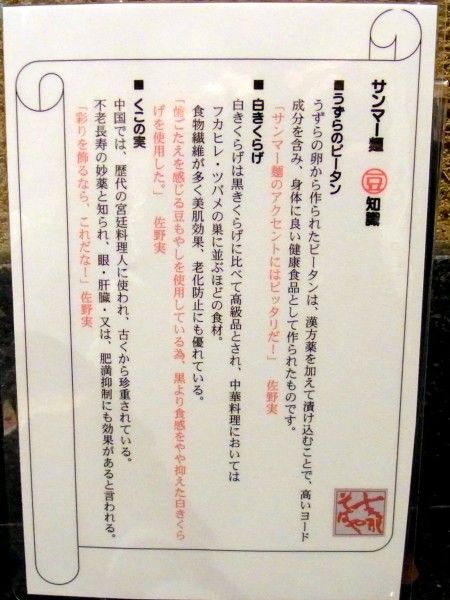 サンマー麺 豆 知識
■うずらのピータン
うずらの卵から作られたピータンは、漢方薬を加えて漬け込むことで、高いヨード
成分を含み、身体に良い健康食品として作られたものです。
「サンマー麺のアクセントにはピッタリだ!」 佐野実
■白きくらげ
白きくらげは黒きくらげに比べて高級品とされ、中華料理においては
フカヒレ・ツバメの巣に並ぶほどの食材。
食物繊維が多く美肌効果、老化防止にも優れている。
「歯ごたえを感じる豆もやしを使用している為、黒より食感をやや抑えた白きくら
げを使用した。」 佐野実
■くこの実
中国では、歴代の宮廷料理人に使われ、古くから珍重されている。
不老長寿の妙薬と知られ、眼・肝臓・又は、肥満抑制にも効果があると言われる。
「彩りを飾るなら、これだな!」佐野実